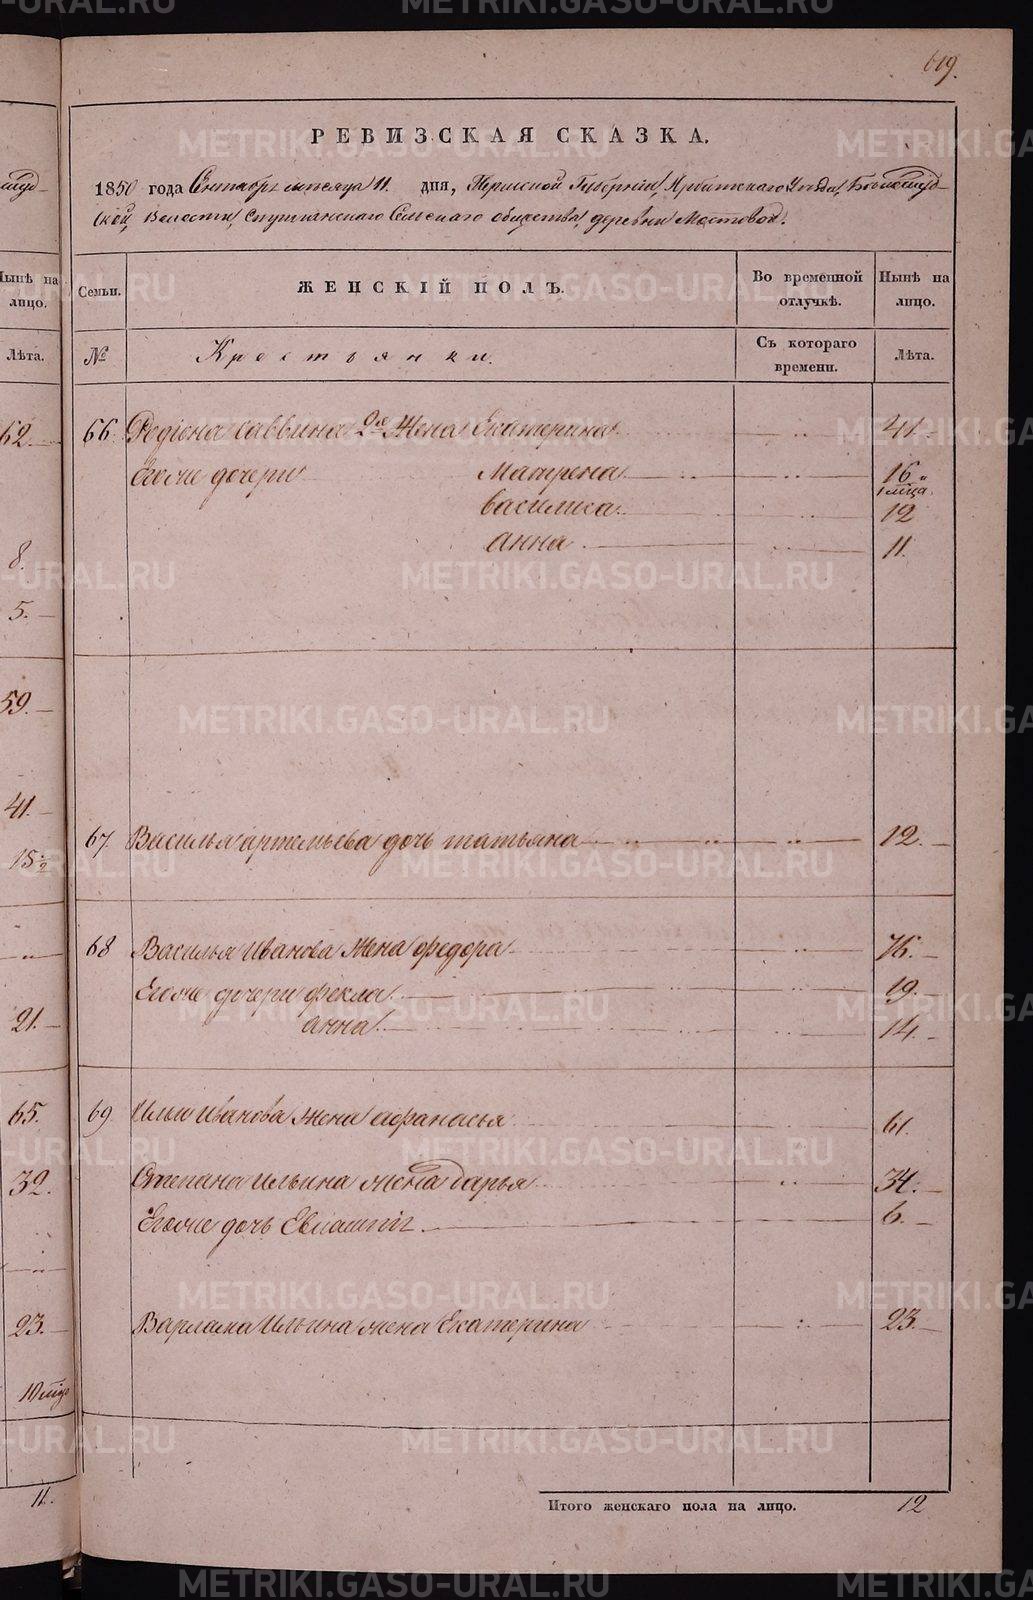 619.
РЕВИЗСКАЯ СКАЗКА.
1850 года Сентября месяца 11 дня, Пермской Губернии, Ирбитского Уезда,
Волости, Сельского общества, деревни Мостовой.
Семьи. ЖЕНСКІЙ ПОЛЪ. Во временной отлучкѣ. Нынѣ на лицо.
№ Крестьянки. Съ котораго времени. Лѣта.
66 Родіона Саввина 2ая Жена Екатерина 41.
Егоже дочери Матрена 16
1 мѣца.
Василиса 12
Анна 11.
67. Василья Артемьева дочь Татьяна 12.
68 Василья Иванова Жена Федора
Егоже дочери Фекла 19.
Анна 14.
69 Ильи Иванова жена Афанасья 61.
Степана Ильина жена Дарья 34.
Егоже дочь 6.
Варлама Ильина жена Екатерина 23.
Итого женскаго пола на лицо. 12
Нынѣ на лицо.
Лѣта.
62.
8.
5.
59.
41.
21.
65.
32.
23.
11.
METRIKI.GASO-URAL.RU